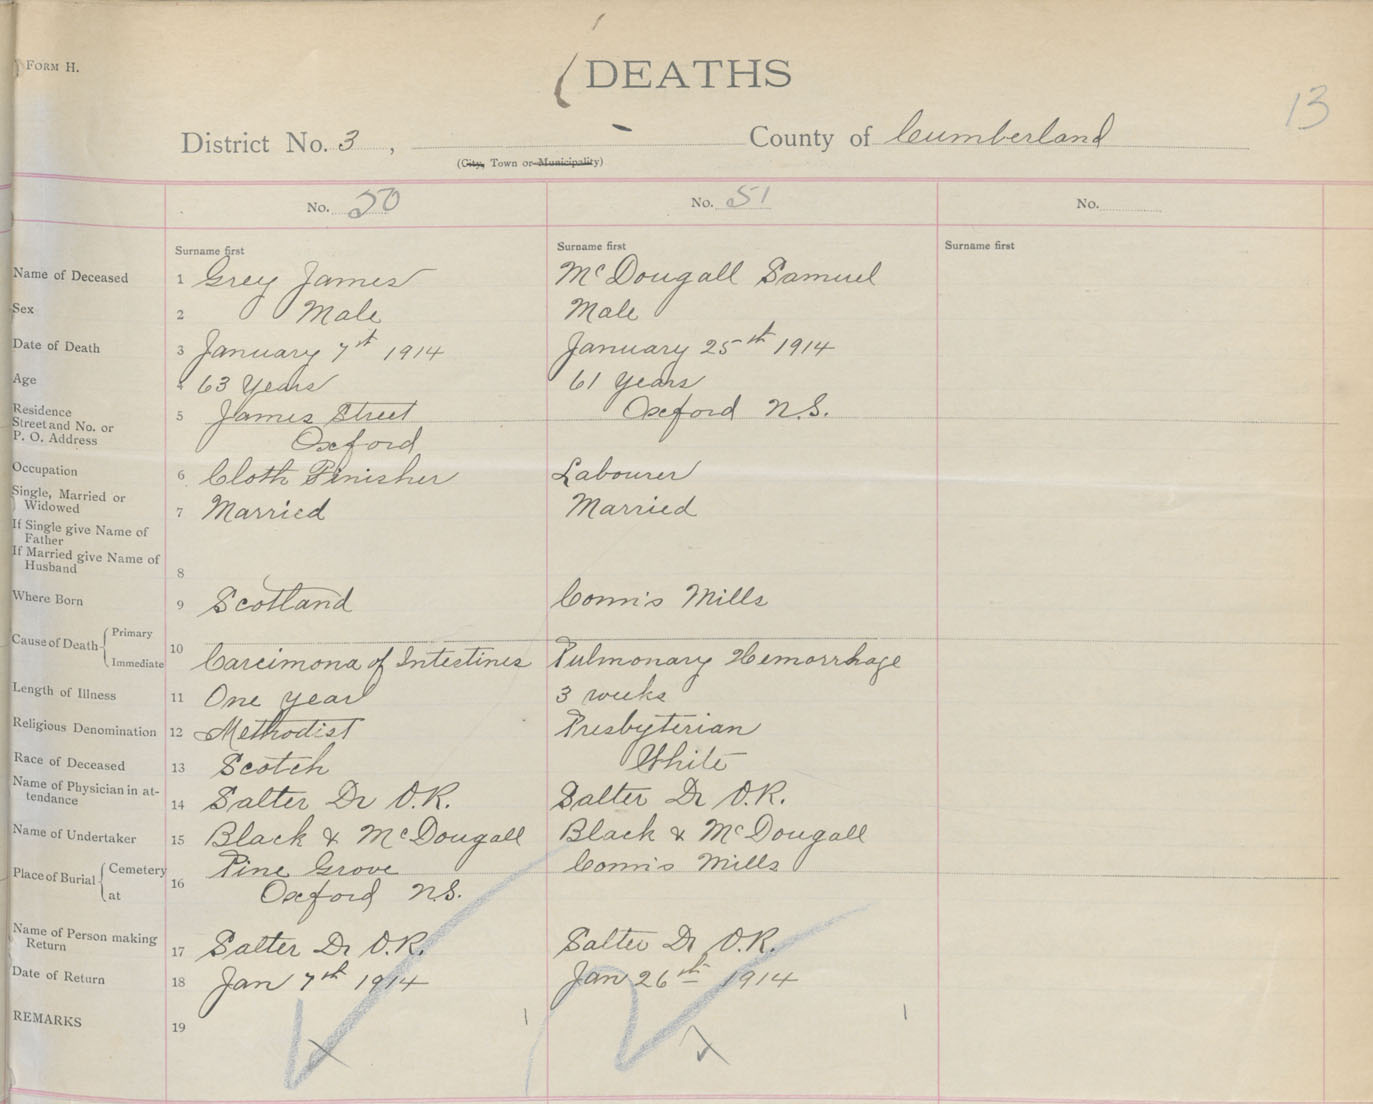 FORM H.
DEATHS
13
District No. 3 , County of Cumberland
(City, Town or Municipality)
No. 50 No. 51 No.
Surname first Surname first Surname first
Name of Deceased 1 Grey James McDougall Samuel
Sex 2 Male Male
Date of Death 3 January 7th 1914 January 25th 1914
Age 4 63 Years 61 Years
Residence
Street and No. or 5 James Street Oxford N.S.
P. O. Address Oxford
Occupation 6 Cloth Finisher Labourer
Single, Married or
Widowed 7 Married Married
If Single give Name of
Father
If Married give Name of
Husband 8
Where Born 9 Scotland Conn's Mills
Cause of Death Primary
Immediate 10 Carcimona of Intestines Pulmonary Hemorrhage
Length of Illness 11 One year 3 weeks
Religious Denomination 12 Methodist Presbyterian
Race of Deceased 13 Scotch White
Name of Physician in at-
tendance 14 Salter Dr O.R. Salter Dr O.R.
Name of Undertaker 15 Black & McDougall Black & McDougall
Place of Burial Cemetery Pine Grove Conn's Mills
at 16 Oxford N.S.
Name of Person making
Return 17 Salter Dr O.R. Salter Dr O.R.
Date of Return 18 Jan 7th 1914 Jan 26th 1914
REMARKS 19